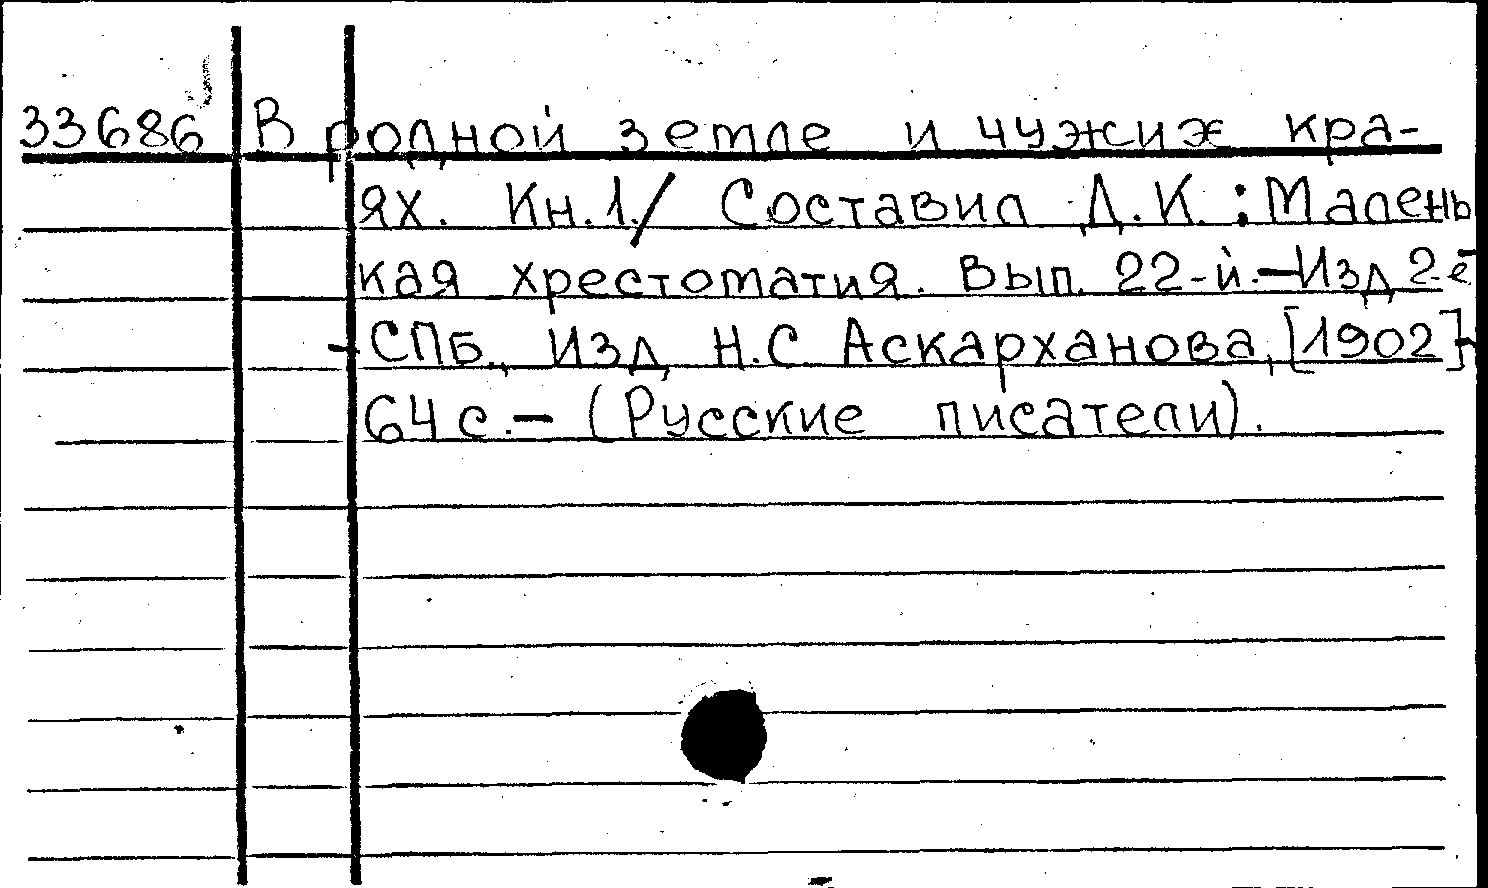 33686 В родной земле и чужих кра-
ях. Кн.1./ Составил Д.К. : Малень
кая хрестоматия. Вып. 22-й.-Изд 2-е
-СПб., Изд. Н.С. Аскарханова, [1902]-
64 с.- (Русские писатели).